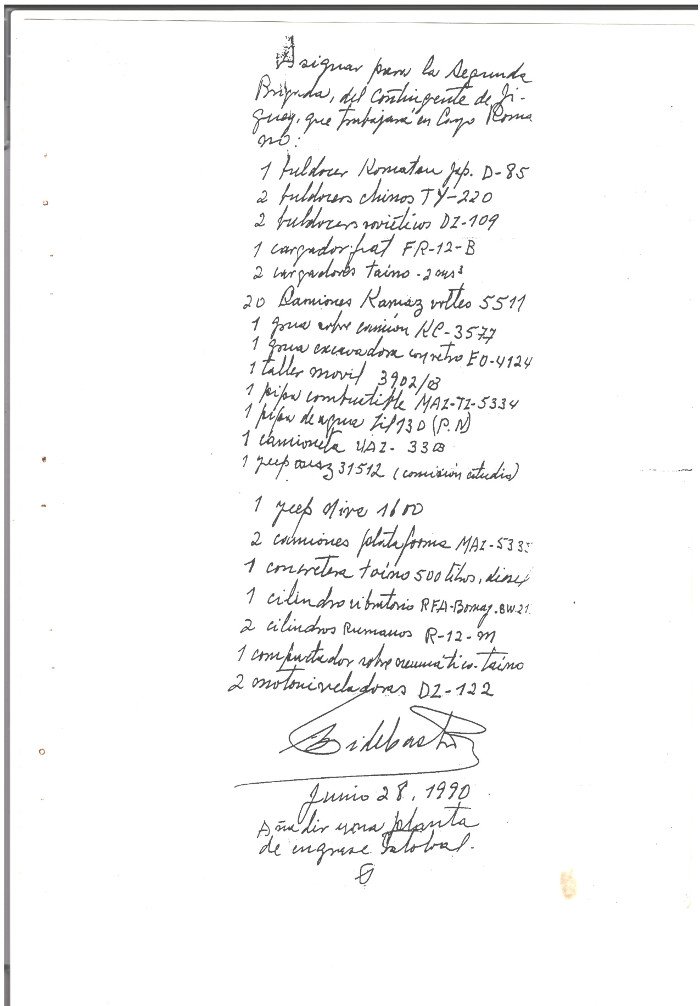 Asignar para la Segunda
Brigada, del Contingente de Ji-
guey, que trabajará en Cayo Roma
no:
1 buldocer Komatsu Jap. D-85
2 buldocers chinos TY-220
2 buldocers soviéticos DZ-109
1 cargador fiat FR-12-B
2 cargadores taino - 2
20 Camiones Kamaz volteo 5511
1 grua sobre camión KC-3577
1 grua excavadora con retro EO-4124
1 taller movil 3902/03
1 pipa combustible MAZ-TZ-5334
1 pipa de agua Zil 130 (P.N)
1 camioneta UAZ- 3303
1 yeep 31512 (comisión estudio)
1 yeep 1600
2 camiones plataforma MAZ-5335
1 concretera taino 500 litros, diesel
1 cilindro vibratorio RFA-Bomag.BW.21
2 cilindros Rumanos R-12-M
1 compactador sobre neumático-taino
2 motoniveladoras DZ-122
Fidel Castro
Junio 28, 1990
Añadir una planta
de engrase